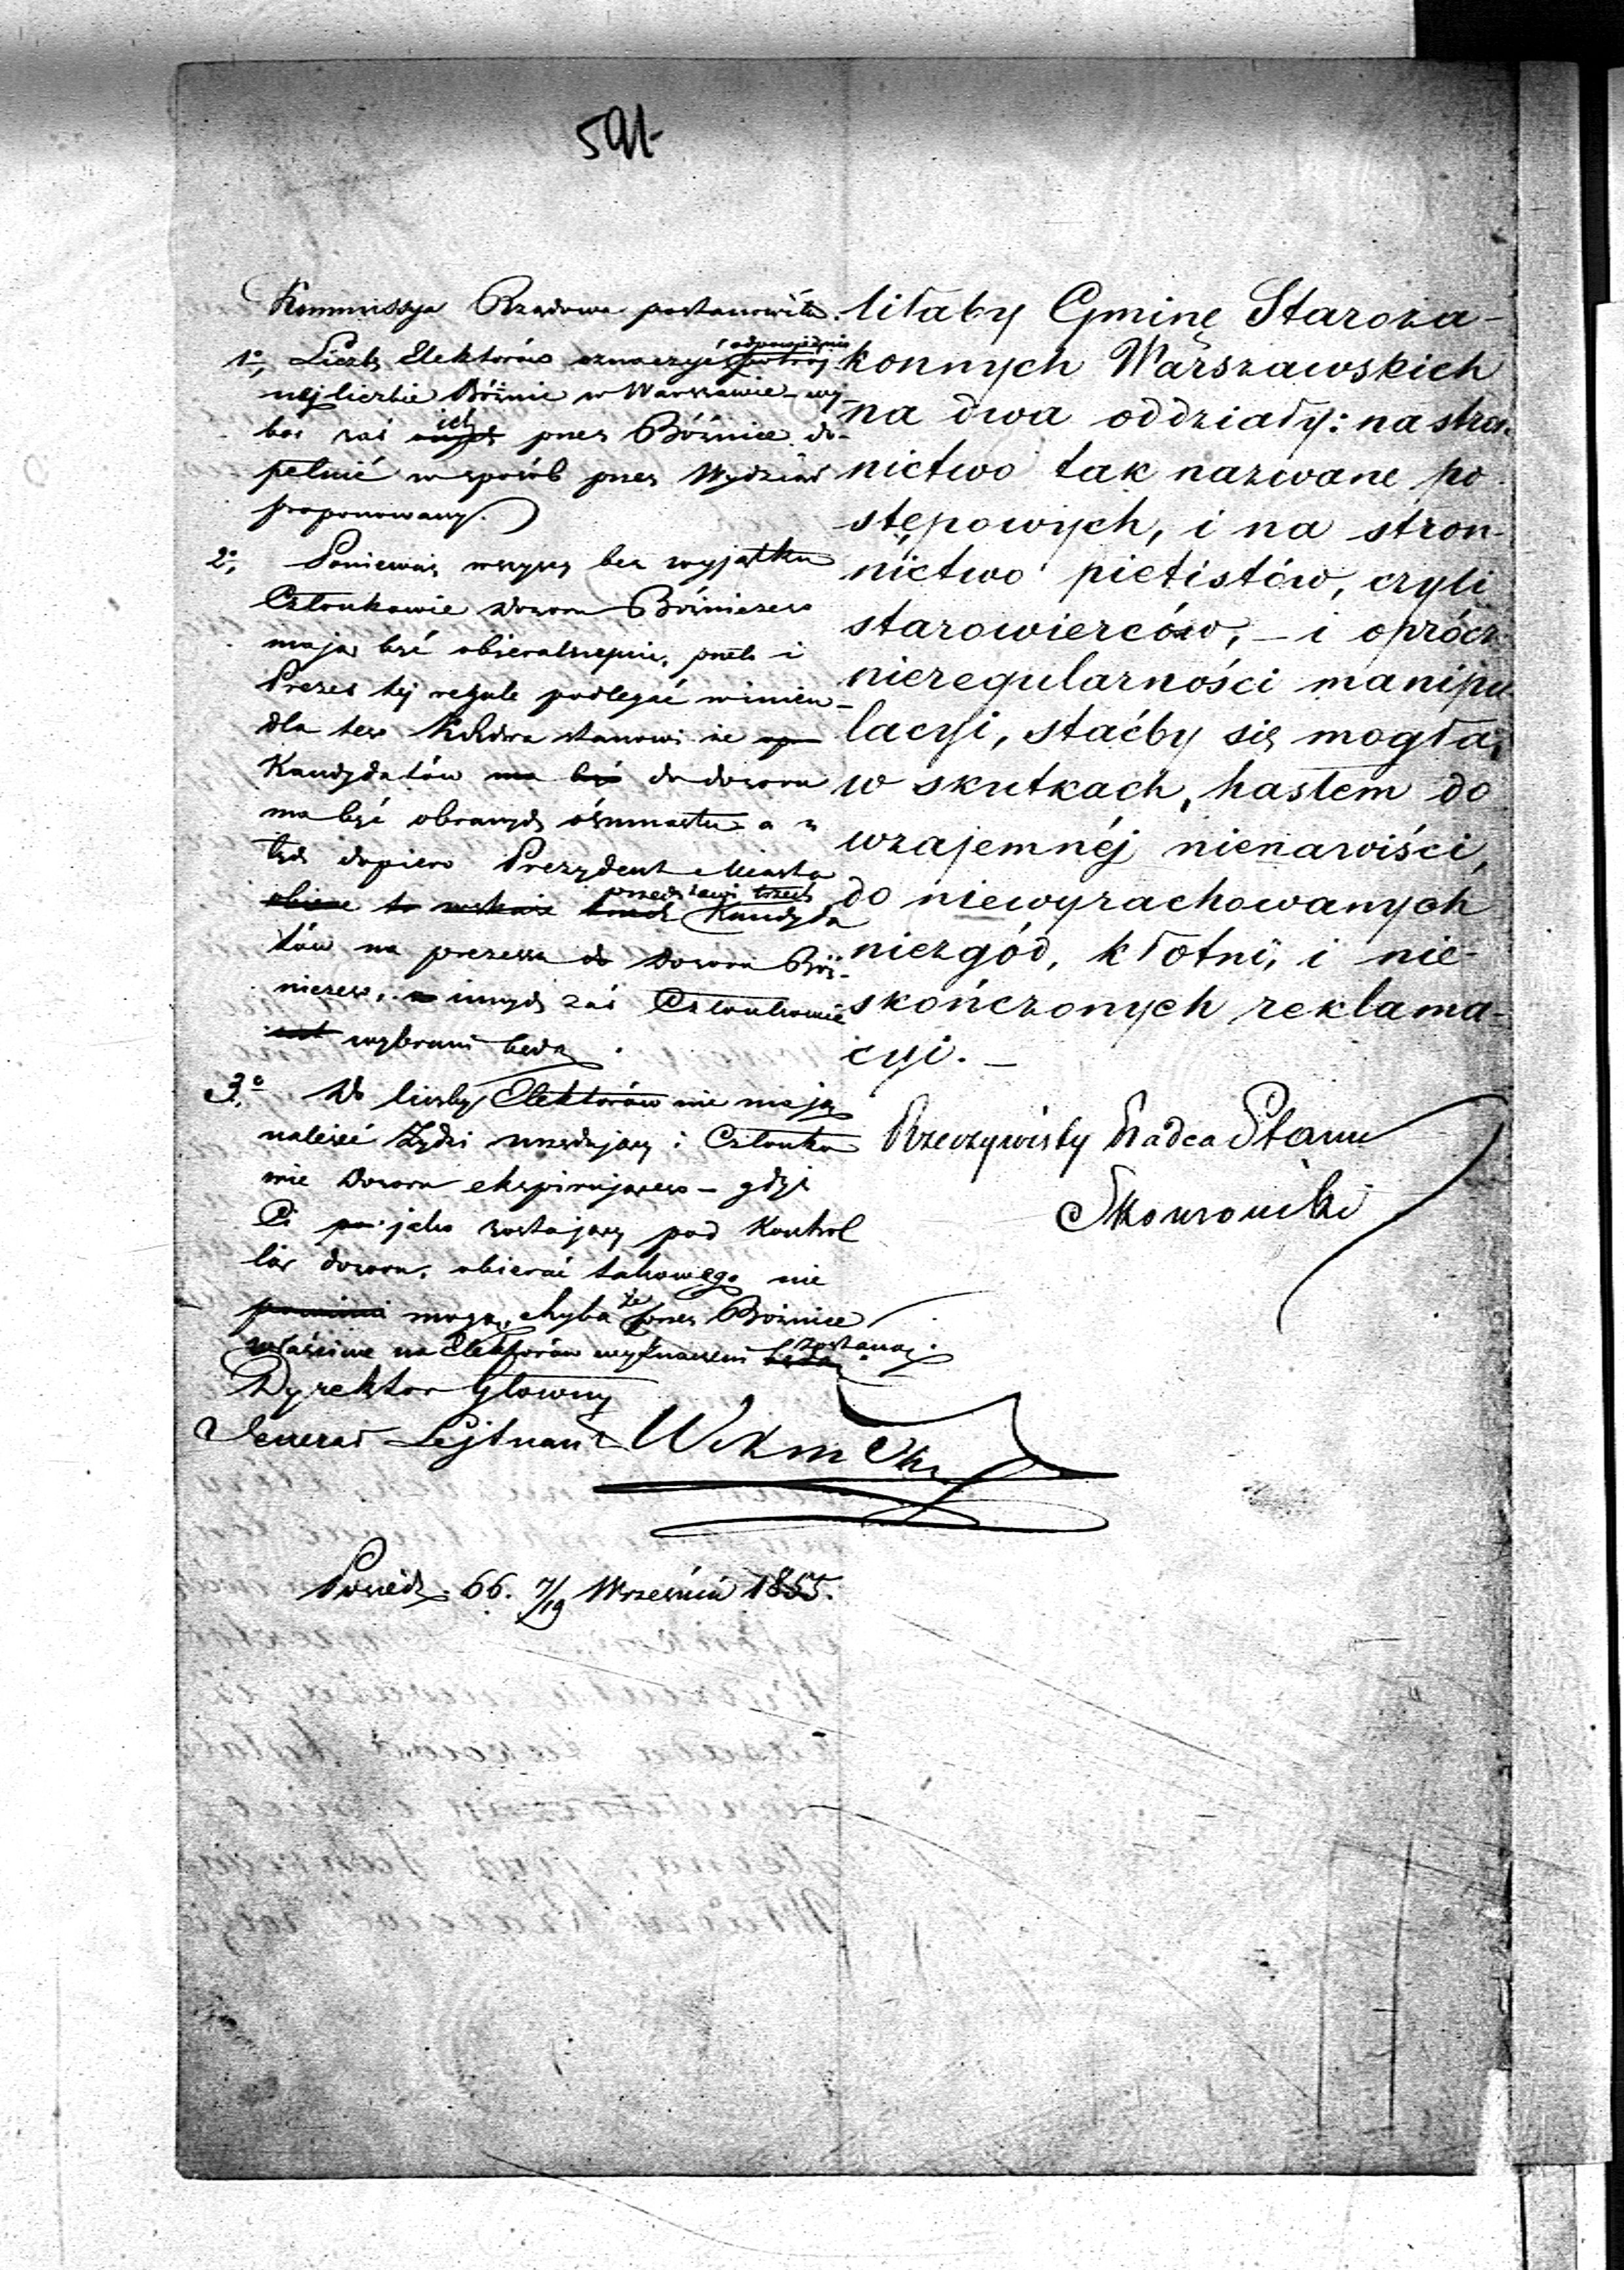 591
Kommissya Rządowa postanowiła.
1º, Liczbę Elektorów oznaczyć odpowiednio potrój-
nej liczbie Bóżnic w Warszawie – wy-
bór zaś ich przez Bóżnice do-
pełnić w sposób przez Wydział
proponowany.
2º, Ponieważ wszyscy bez wyjątku
Członkowie Dozoru Bóżniczego
mają być obieralnemi, przeto i
Prezes tej regule podlegać winien –
dla tego stanowi że
Kandydatów ma być do dozoru
ma być obranych ośmnastu a z
tych dopiero Prezydent Miasta
przedstawi trzech Kandyda
tów na prezesa Dozoru Bóż-
niczego, innych zaś Członkowie
wybrani będą.
3º, Do liczby Elektorów nie mają
należeć Żydzi urzędujący i Członko
wie Dozoru ekspirującego – gdyż
Ci jako zostający pod Kontrol
lą dozoru, obierać takowego nie
powinni mogą, chyba że przez Bóżnice
właściwe na Elektorów wyznaczeni będą zostaną.
Dyrektor Główny
Jenerał Lejtnant
Posiedz. 66. 7/19 Września 1855.
liłaby Gminę Staroza-
konnych Warszawskich
na dwa oddziały: na stron-
nictwo tak nazwane po-
stępowych, i na stron-
nictwo pietistów, czyli
starowierców, – i oprócz
nieregularności manipu-
lacyi, staćby się mogła,
w skutkach, hasłem do
wzajemnéj nienawiści,
do niewyrachowanych
niezgód, kłotni, i nie-
skończonych reklama-
cyi. –
Rzeczywisty Radca Stanu